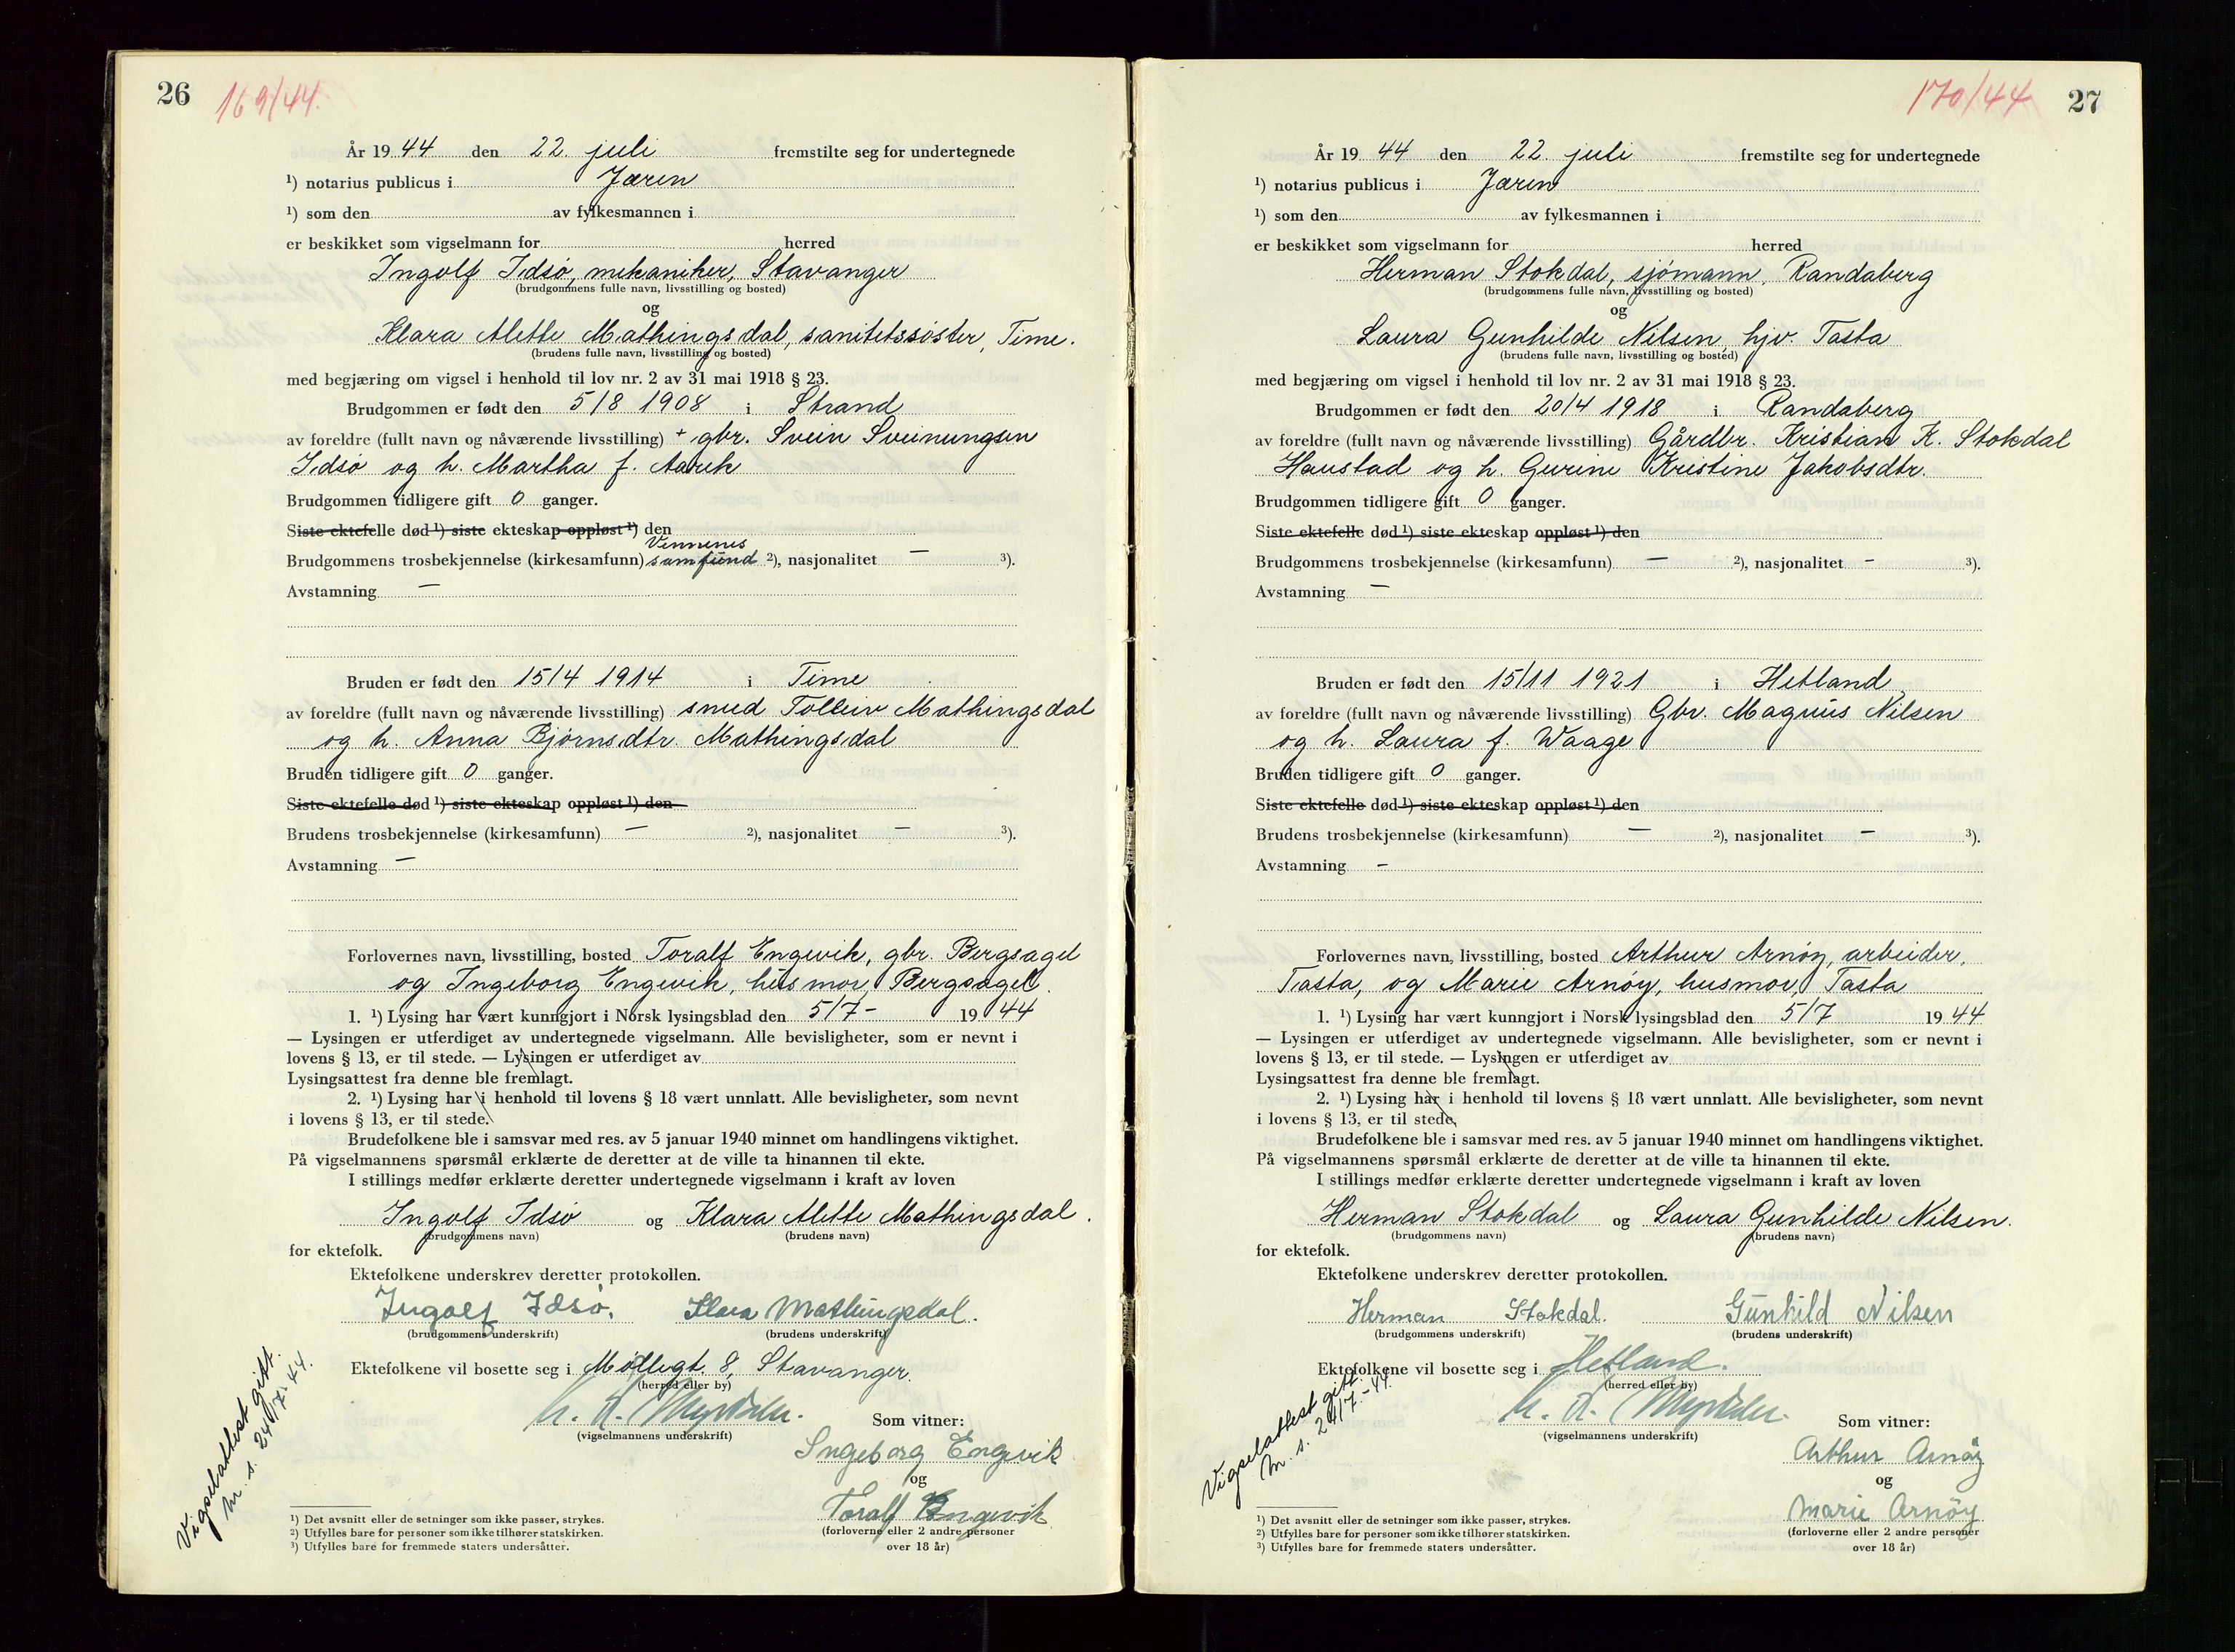 26 169/44.
År 19 44 den 22. juli fremstilte seg for undertegnede
¹) notarius publicus i Jæren
¹) som den av fylkesmannen i
er beskikket som vigselmann for herred
Ingolf Idsø, mekaniker, Stavanger
(brudgommens fulle navn, livsstilling og bosted)
og
Klara Alette Mathingsdal, sanitetssøster, Time.
(brudens fulle navn, livsstilling og bosted)
med begjæring om vigsel i henhold til lov nr. 2 av 31 mai 1918 § 23.
Brudgommen er født den 5/8 1908 i Strand
av foreldre (fullt navn og nåværende livsstilling) + gbr. Svein Sveinungsen
Idsø og h. Martha f. Aarek
Brudgommen tidligere gift 0 ganger.
Siste ektefelle død ¹) siste ekteskap oppløst ¹) den
Vennenes
Brudgommens trosbekjennelse (kirkesamfunn) samfund ²), nasjonalitet — ³).
Avstamning —
Bruden er født den 15/4 1914 i Time
av foreldre (fullt navn og nåværende livsstilling) smed Tolleiv Mathingsdal
og h. Anna Bjørnsdtr. Mathingsdal
Bruden tidligere gift 0 ganger.
Siste ektefelle død ¹) siste ekteskap oppløst ¹) den
Brudens trosbekjennelse (kirkesamfunn) — ²), nasjonalitet — ³).
Avstamning —
Forlovernes navn, livsstilling, bosted Toralf Engevik, gbr. Bergsagel
og Ingeborg Engevik, husmor, Bergsagel.
1. ¹) Lysing har vært kunngjort i Norsk lysingsblad den 5/7 - 19 44
— Lysingen er utferdiget av undertegnede vigselmann. Alle bevisligheter, som er nevnt i
lovens § 13, er til stede. — Lysingen er utferdiget av
Lysingsattest fra denne ble fremlagt.
2. ¹) Lysing har i henhold til lovens § 18 vært unnlatt. Alle bevisligheter, som nevnt
i lovens § 13, er til stede.
Brudefolkene ble i samsvar med res. av 5 januar 1940 minnet om handlingens viktighet.
På vigselmannens spørsmål erklærte de deretter at de ville ta hinannen til ekte.
I stillings medfør erklærte deretter undertegnede vigselmann i kraft av loven
Ingolf Idsø og Klara Alette Mathingsdal.
(brudgommens navn) (brudens navn)
for ektefolk.
Ektefolkene underskrev deretter protokollen.
Ingolf Idsø. Klara Mathingsdal.
(brudgommens underskrift) (brudens underskrift)
Ektefolkene vil bosette seg i Møllegt. 8, Stavanger.
(herred eller by)
(vigselmannens underskrift)
Som vitner:
Ingeborg Engevik
og
Toralf Engevik
(forloverne eller 2 andre personer
over 18 år)
Vigselattest gitt.
m. s. 24/7-44.
¹) Det avsnitt eller de setninger som ikke passer, strykes.
²) Utfylles bare for personer som ikke tilhører statskirken.
³) Utfylles bare for fremmede staters undersåtter.
170/44 27
År 19 44 den 22. juli fremstilte seg for undertegnede
¹) notarius publicus i Jæren
¹) som den av fylkesmannen i
er beskikket som vigselmann for herred
Herman Stokdal, sjømann, Randaberg
(brudgommens fulle navn, livsstilling og bosted)
og
Laura Gunhilde Nilsen, hjv. Tasta
(brudens fulle navn, livsstilling og bosted)
med begjæring om vigsel i henhold til lov nr. 2 av 31 mai 1918 § 23.
Brudgommen er født den 20/4 1918 i Randaberg
av foreldre (fullt navn og nåværende livsstilling) Gårdbr. Kristian K. Stokdal
Haustad og h. Gurine Kristine Jakobsdtr.
Brudgommen tidligere gift 0 ganger.
Siste ektefelle død ¹) siste ekteskap oppløst ¹) den
Brudgommens trosbekjennelse (kirkesamfunn) — ²), nasjonalitet - ³).
Avstamning —
Bruden er født den 15/11 1921 i Hetland
av foreldre (fullt navn og nåværende livsstilling) Gbr. Magnus Nilsen
og h. Laura f. Waage
Bruden tidligere gift 0 ganger.
Siste ektefelle død ¹) siste ekteskap oppløst ¹) den
Brudens trosbekjennelse (kirkesamfunn) — ²), nasjonalitet — ³).
Avstamning -
Forlovernes navn, livsstilling, bosted Arthur Arnøy, arbeider,
Tasta, og Marie Arnøy, husmor, Tasta
1. ¹) Lysing har vært kunngjort i Norsk lysingsblad den 5/7 19 44
— Lysingen er utferdiget av undertegnede vigselmann. Alle bevisligheter, som er nevnt i
lovens § 13, er til stede. — Lysingen er utferdiget av
Lysingsattest fra denne ble fremlagt.
2. ¹) Lysing har i henhold til lovens § 18 vært unnlatt. Alle bevisligheter, som nevnt
i lovens § 13, er til stede.
Brudefolkene ble i samsvar med res. av 5 januar 1940 minnet om handlingens viktighet.
På vigselmannens spørsmål erklærte de deretter at de ville ta hinannen til ekte.
I stillings medfør erklærte deretter undertegnede vigselmann i kraft av loven
Herman Stokdal og Laura Gunhilde Nilsen.
(brudgommens navn) (brudens navn)
for ektefolk.
Ektefolkene underskrev deretter protokollen.
Herman Stokdal. Gunhild Nilsen
(brudgommens underskrift) (brudens underskrift)
Ektefolkene vil bosette seg i Hetland.
(herred eller by)
(vigselmannens underskrift)
Som vitner:
Arthur Arnøy
og
Marie Arnøy
(forloverne eller 2 andre personer
over 18 år)
Vigselattest gitt.
m. s. 24/7-44.
¹) Det avsnitt eller de setninger som ikke passer, strykes.
²) Utfylles bare for personer som ikke tilhører statskirken.
³) Utfylles bare for fremmede staters undersåtter.